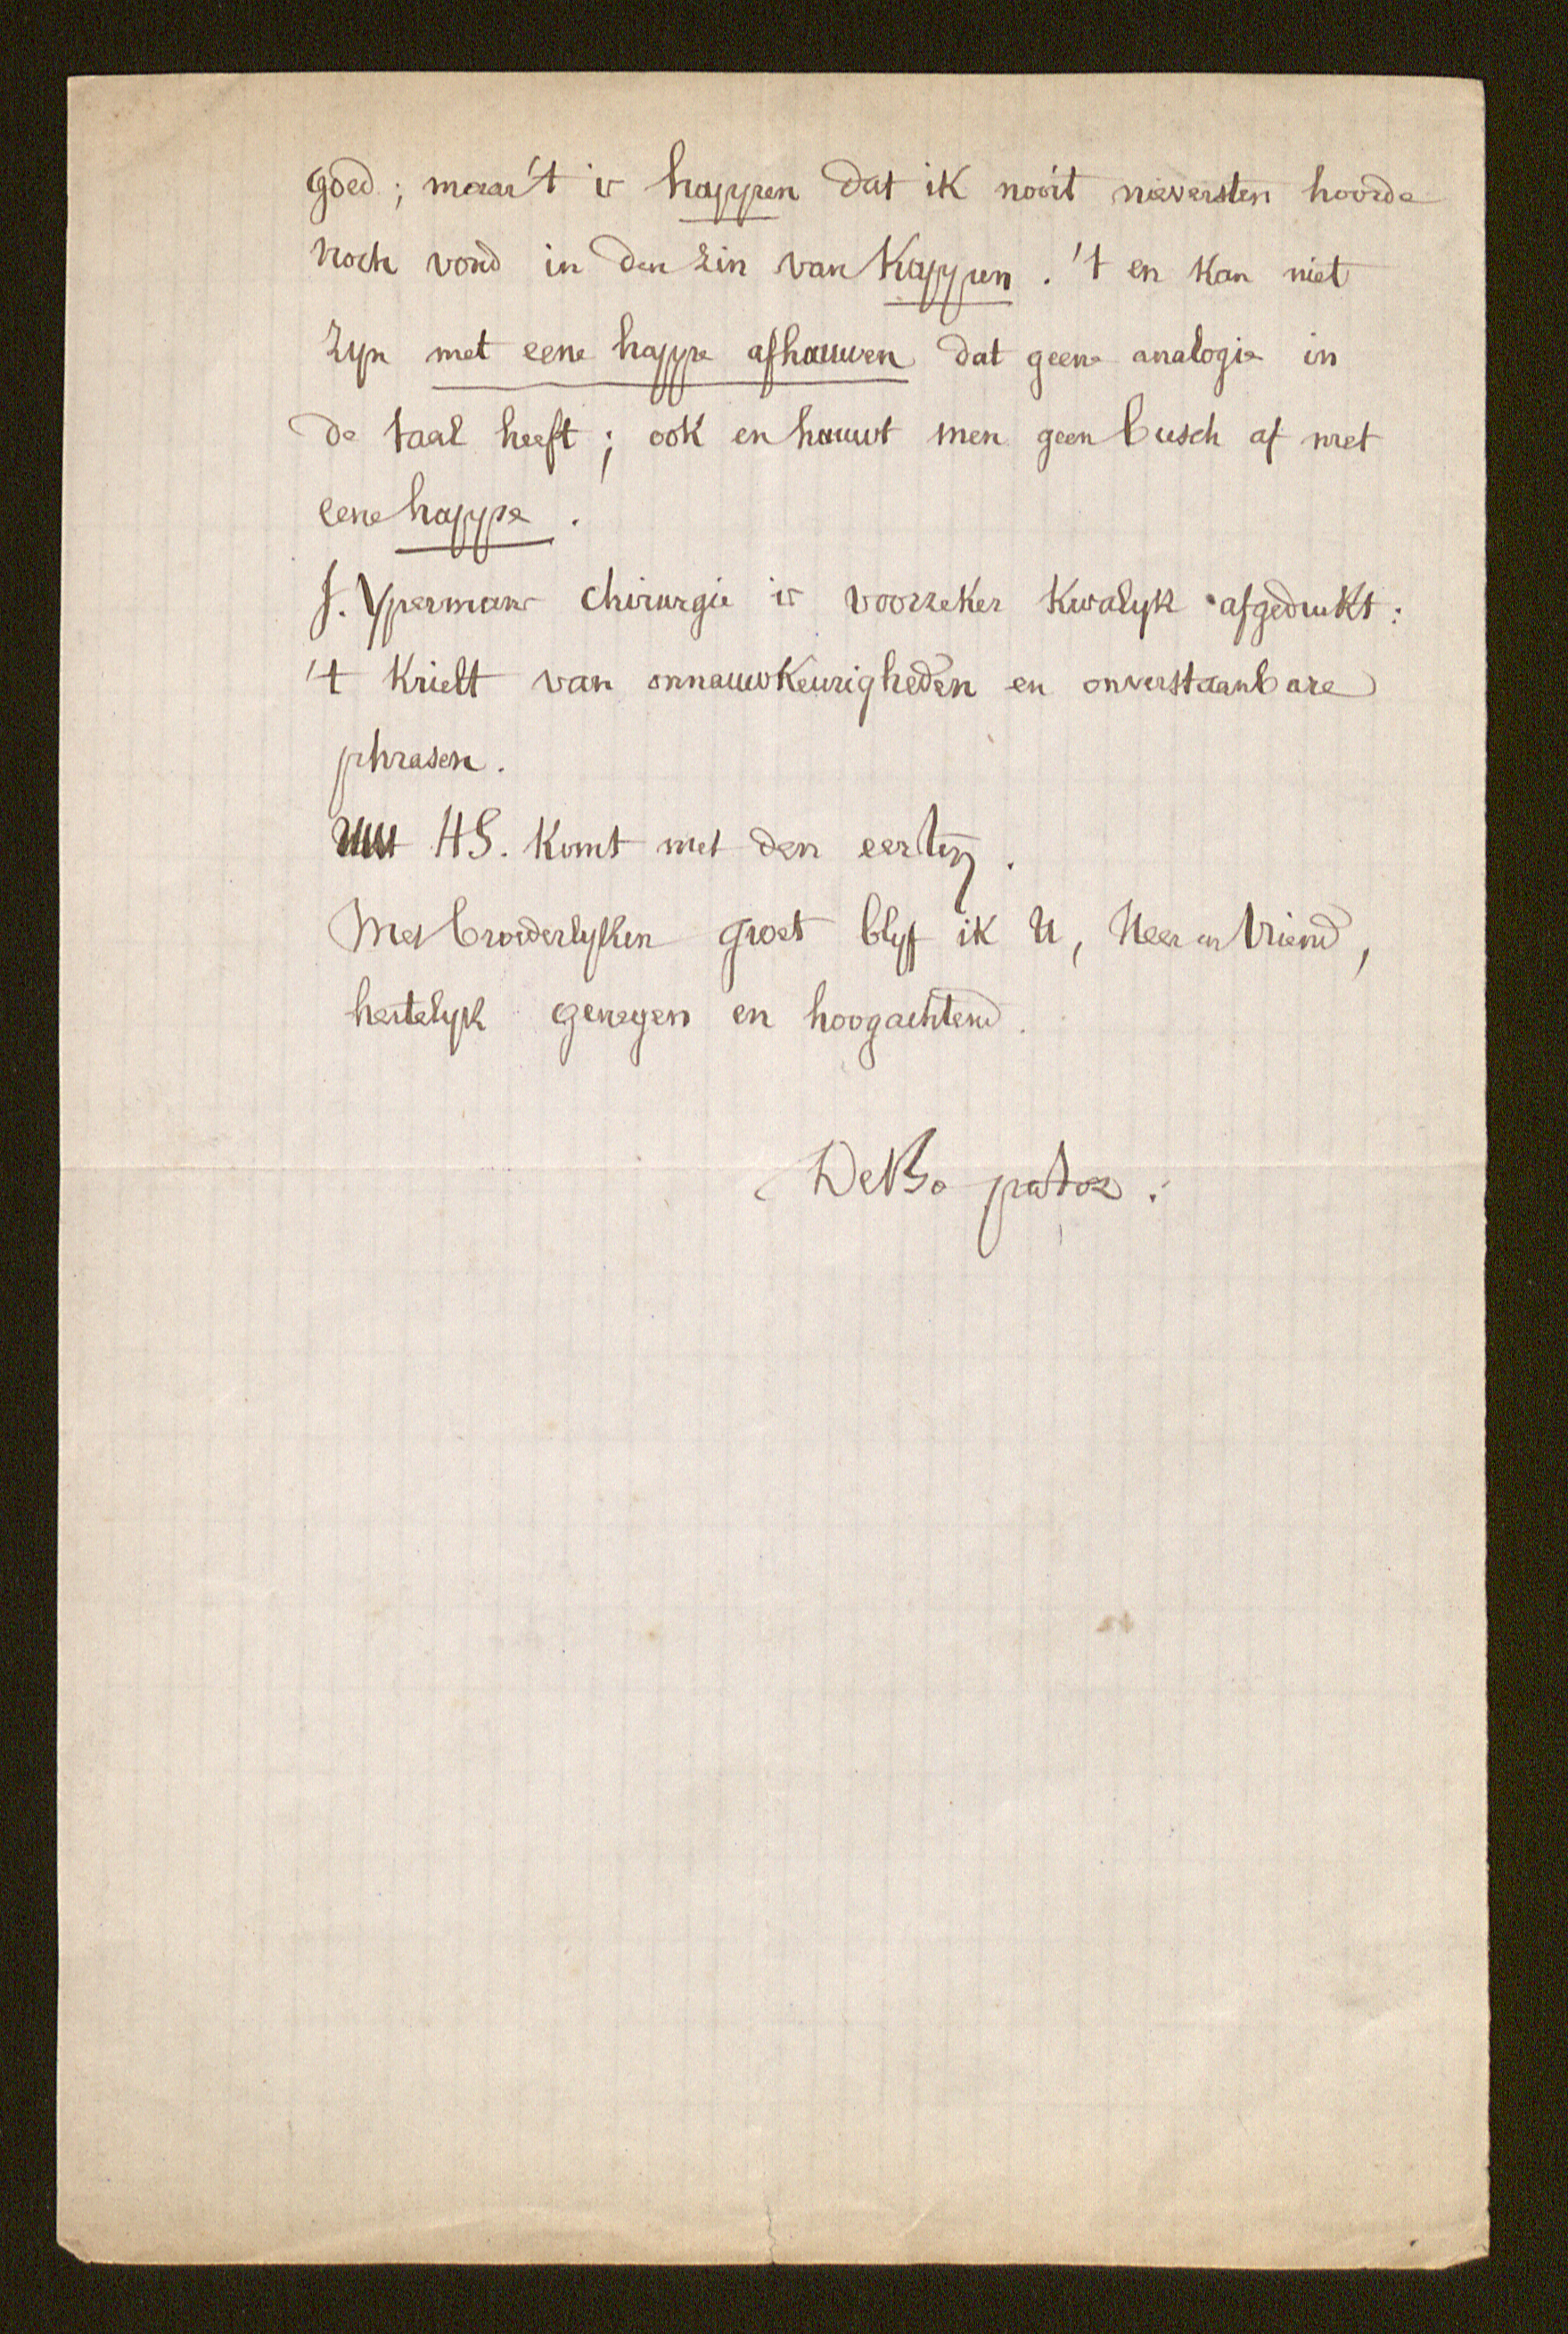 goed; maar 't is happen dat ik nooit nieversten hoorde
noch vond in den zin van Kappen. 't en kan niet
zyn met eene happe afhauwen dat geene analogie in
de taal heeft; ook en hauwt men geen busch af met
eene happe.
J. Ypermans chirurgie is voorzeker kwalyk afgedrukt:
't krielt van onnauwkeurigheden en onverstaanbare
phrasen.
Uw HS. komt met den eersten.
Met broederlyken groet blyf ik U, Heer en Vriend,
hertelyk genegen en hoogachtend.
DeBo pastor.